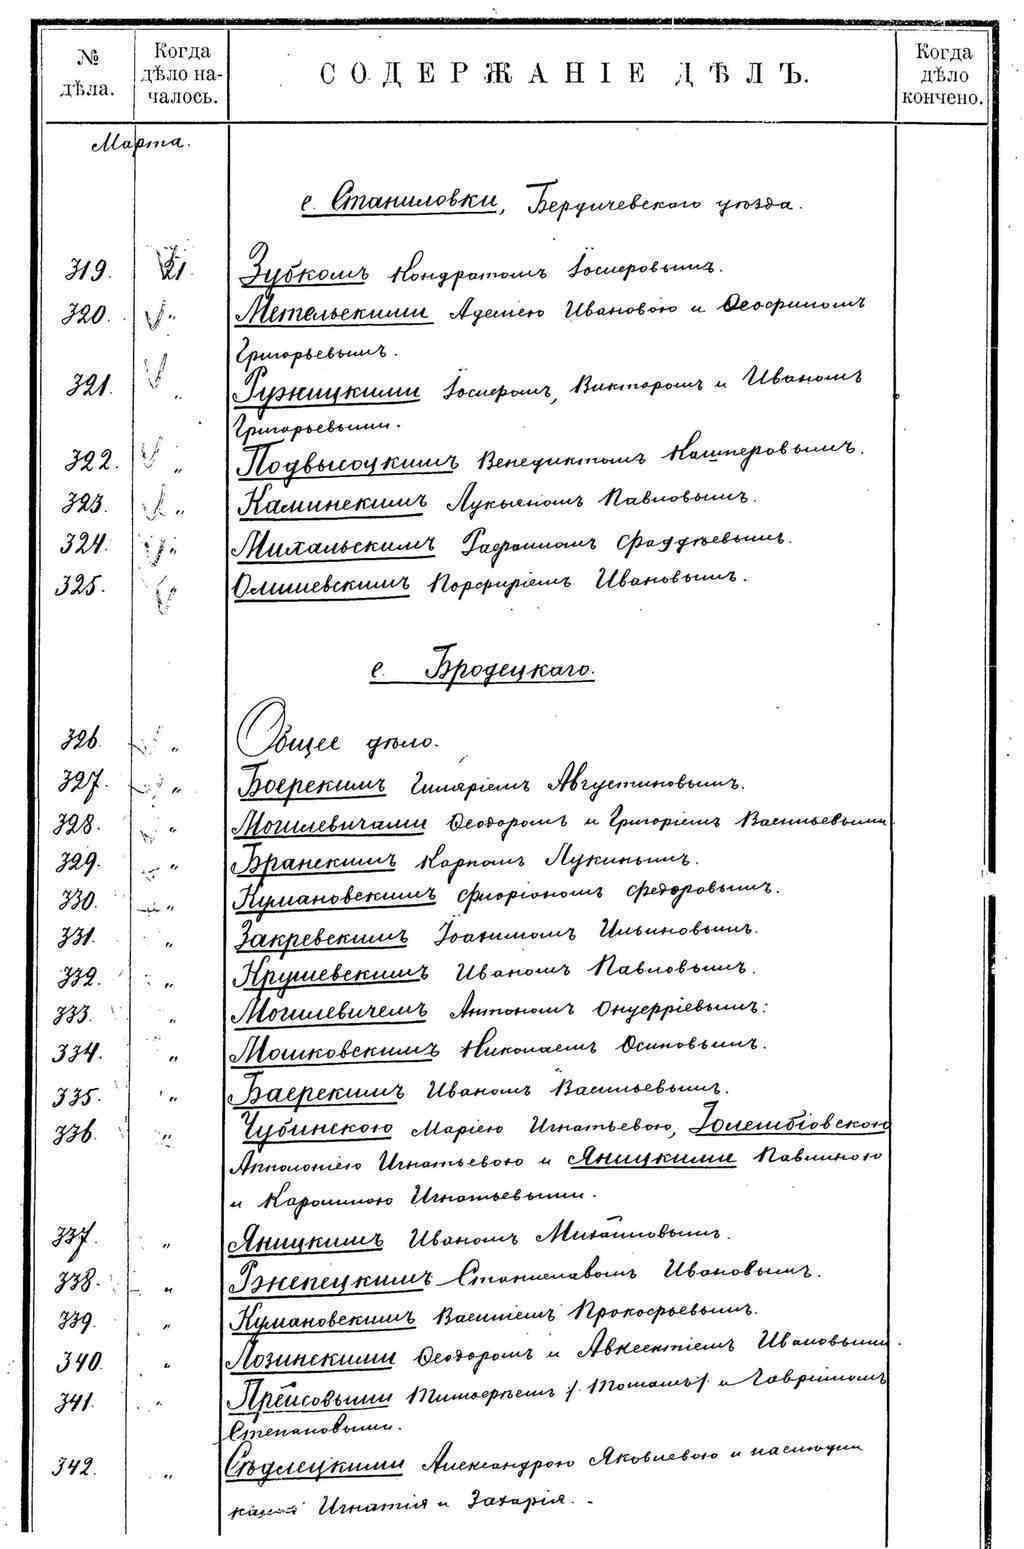 № дѣла.
Когда дѣло началось.
СОДЕРЖАНІЕ ДѢЛЪ.
Когда дѣло кончено.
Марта.
с. Станиловки, Бердичевскаго уѣзда.
319. 21. Зубкомъ Кондратомъ Іосиеровымъ.
320. " Метельскими Аделiею Ивановою и Ѳеофиломъ
Григорьевымъ.
321. " Ружицкими Іосиеромъ, Викторомъ и Иваномъ
Григорьевыми.
322. " Подвысоцкимъ Венедиктомъ Кашперовымъ.
323. " Каминскимъ Лукьяномъ Павловымъ.
324. " Михальскимъ Рафаиломъ Фаддѣевымъ.
325. Олишевскимъ Порфиріемъ Ивановымъ.
с. Бродецкаго.
326. " Общее дѣло.
327. " Боерскимъ Гиляріемъ Августиновымъ.
328. " Могилевичами Ѳеодоромъ и Григоріемъ Васильевыми
329. " Бранскимъ Карпомъ Лукинымъ.
330. " Кумановскимъ Флоріономъ Федоровымъ.
331. " Закревскимъ Іоакимомъ Ильиновымъ.
332. " Крушевскимъ Иваномъ Павловымъ.
333. " Могилевичемъ Антономъ Онуфріевымъ:
334. " Мошковскимъ Николаемъ Осиповымъ.
335. " Баерскимъ Иваномъ Васильевымъ.
336. " Чубинскою Маріею Игнатьевою,
Апполоніею Игнатьевою и Яницкими Павлиною
и Каролиною Игнатьевыми.
337. " Яницкимъ Иваномъ Михайловымъ.
338. " Ржепецкимъ Станиславомъ Ивановымъ.
339. " Кумановскимъ Василіемъ Прокофьевымъ.
340. " Лозинскими Ѳеодоромъ и Авксентіемъ Ивановыми.
341. " Прейсовыми Тимофеемъ /: Томашъ :/ и Гавріиломъ
Степановыми.
342. " Сѣдлецкими Александрою Яковлевою и
Игнатія и Захарія.